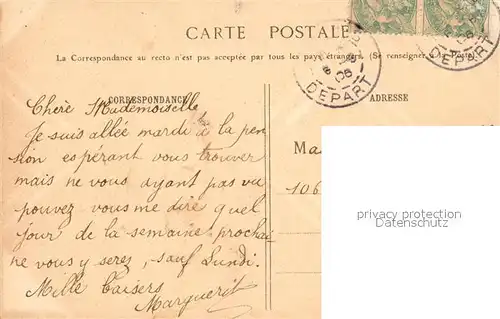 CARTE POSTALE
La Correspondance au recto n'est pas acceptée par tous les pays étrangers (Se renseigner à la Poste)
CORRESPONDANCE
ADRESSE
DÉPART
08
DÉPART
Chère Mademoiselle
Je suis allée mardi à la pen
sion espérant vous trouver
mais ne vous ayant pas vu
pouvez vous me dire quel
jour de la semaine prochai
ne vous y serez, sauf Lundi.
Mille baisers
Marguerit
Ma
106
privacy protection